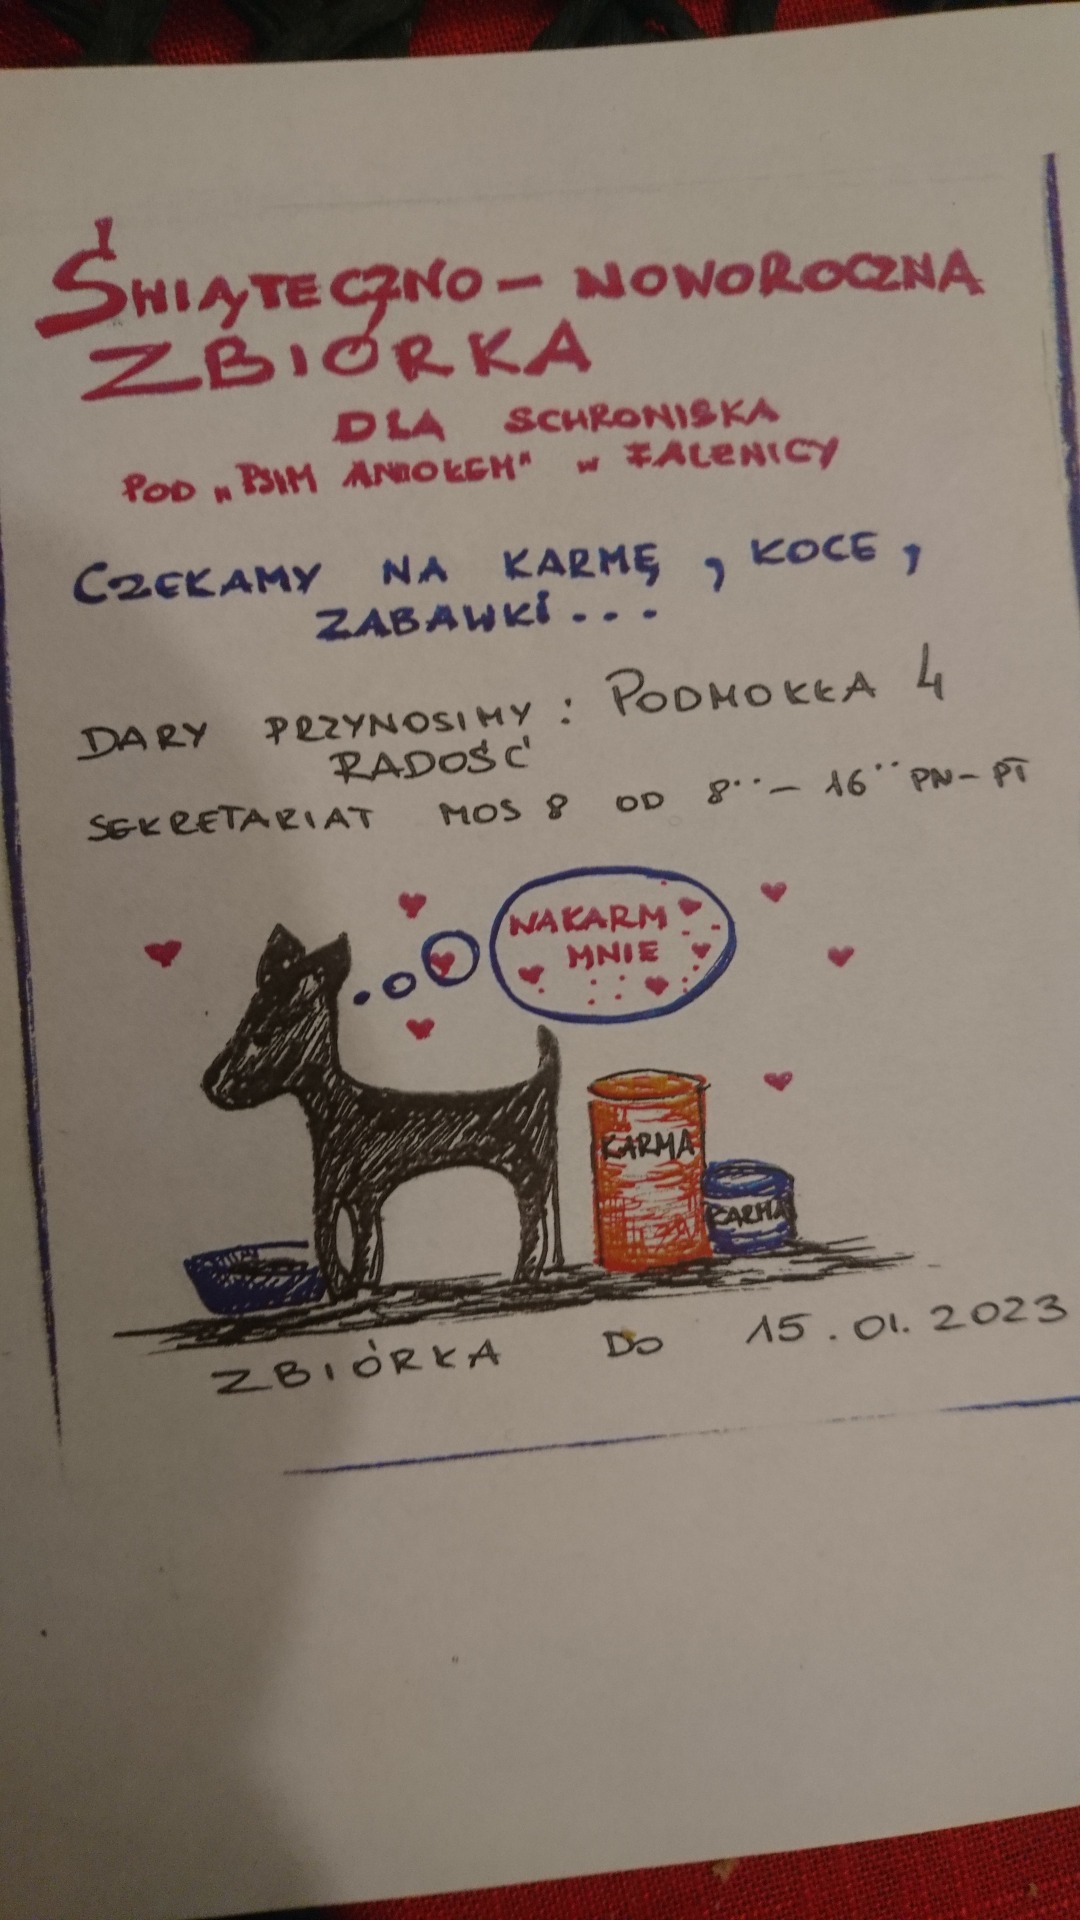 ŚWIĄTECZNO - NOWOROCZNA
ZBIÓRKA
DLA SCHRONISKA
POD „PSIM ANIOŁEM" W FALENICY
CZEKAMY NA KARMĘ, KOCE,
ZABAWKI...
DARY PRZYNOSIMY: PODMOKŁA 4
RADOŚĆ
SEKRETARIAT MOS 8 OD 8¨ - 16¨ PN-PT
NAKARM
MNIE
KARMA
KARMA
ZBIÓRKA DO 15.01.2023